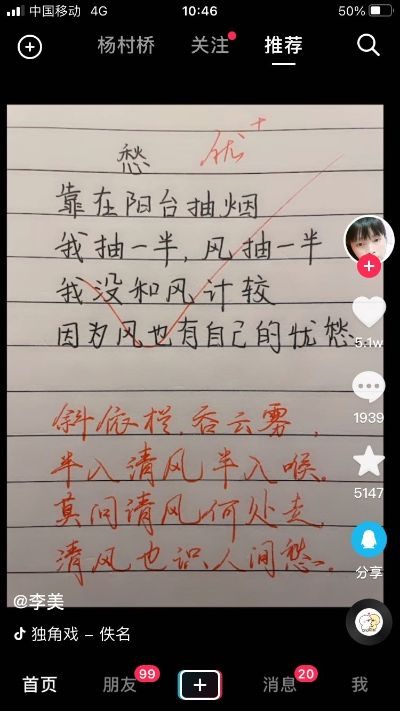 中国移动 4G 10:46 50%
杨村桥 关注 推荐
愁 优+
靠在阳台抽烟
我抽一半,风抽一半
我没和风计较
因为风也有自己的忧愁
5.1w
1939
斜依栏,吞云雾,
半入清风半入喉。
莫问清风何处走,
清风也识人间愁。
5147
分享
@李美
独角戏 – 佚名
首页 朋友 99 消息 20 我